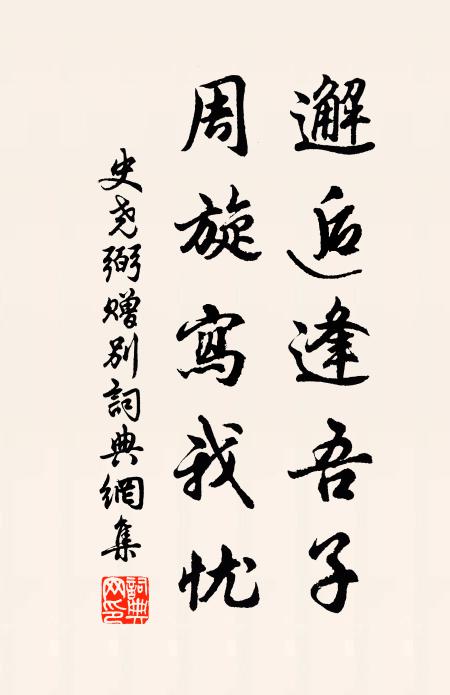 邂逅逢吾子
周旋寫我忧
史尧弼赠别詞典網集
詞典网印